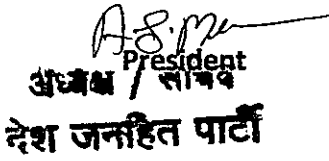 President
अध्यक्ष / सचिव
देश जनहित पार्टी